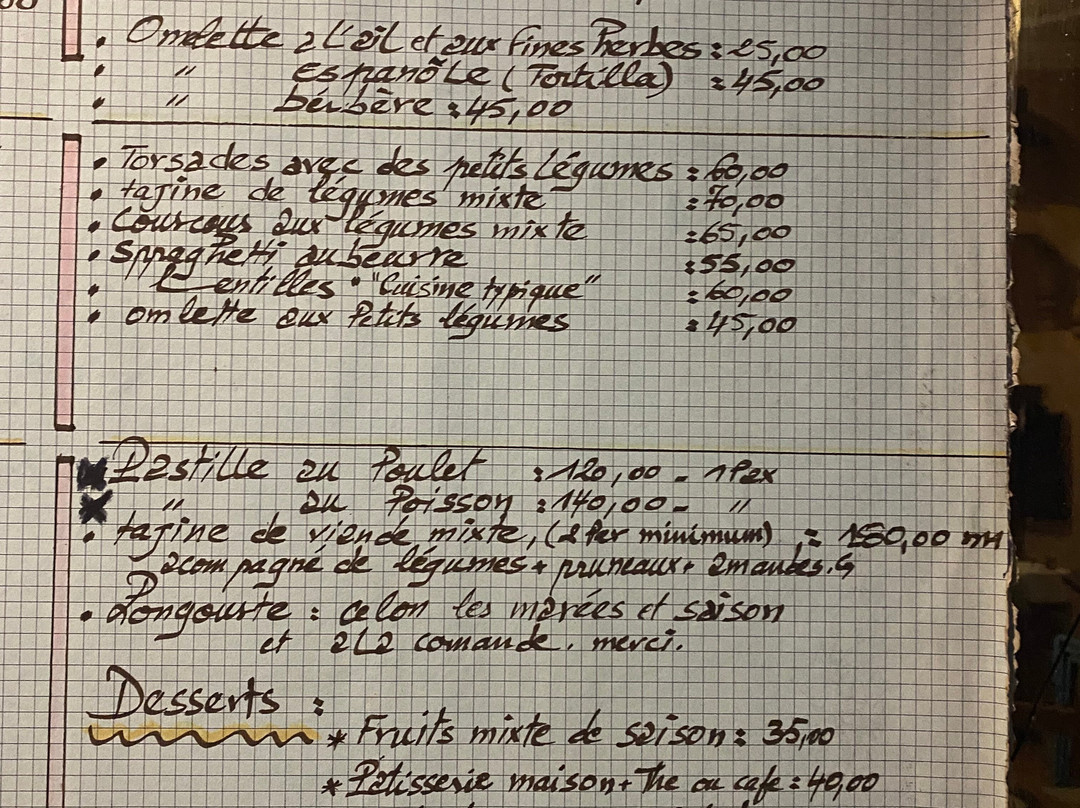 • Omelette a L'ail et aux fines herbes : 25,00
• " Espanõle (Tortilla) : 45,00
• " bérbère : 45,00
• Torsades avec des petits légumes : 60,00
• tajine de légymes mixte : 70,00
• Courcous aux légumes mixte : 65,00
• Sppaghetti au beurre : 55,00
• Lentilles • "Cuisine typique" : 60,00
• omlette aux Petits légumes : 45,00
Pastille au Poulet : 120,00 - 1 Pax
" au Poisson : 140,00 - "
• tajine de viende mixte, (2 Per minimum) , : 150,00 mH
acompagné de légumes + pruneaux +
• Longouste : celon les marées et saison
et a La comande. merci.
Desserts :
* Fruits mixte de saison : 35,00
* Patisserie maison + The ou cafe : 40,00